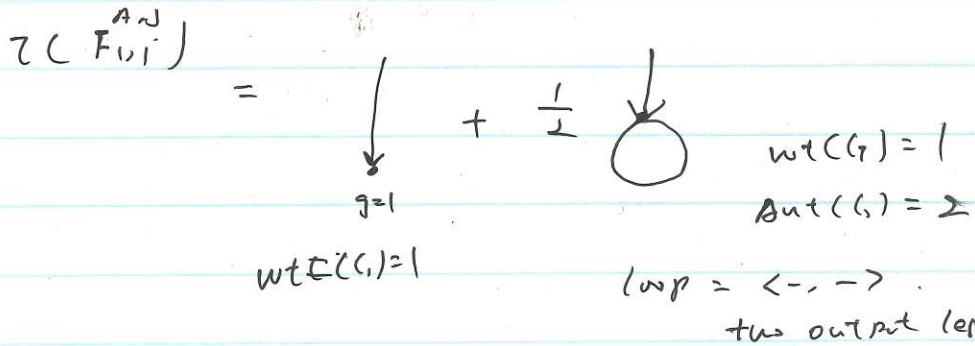 τ( F₁,₁^An )
= + 1/2
g=1
wt(G) = 1
Aut(G) = 2
wt(G)=1
loop = <-, ->.
two output leg